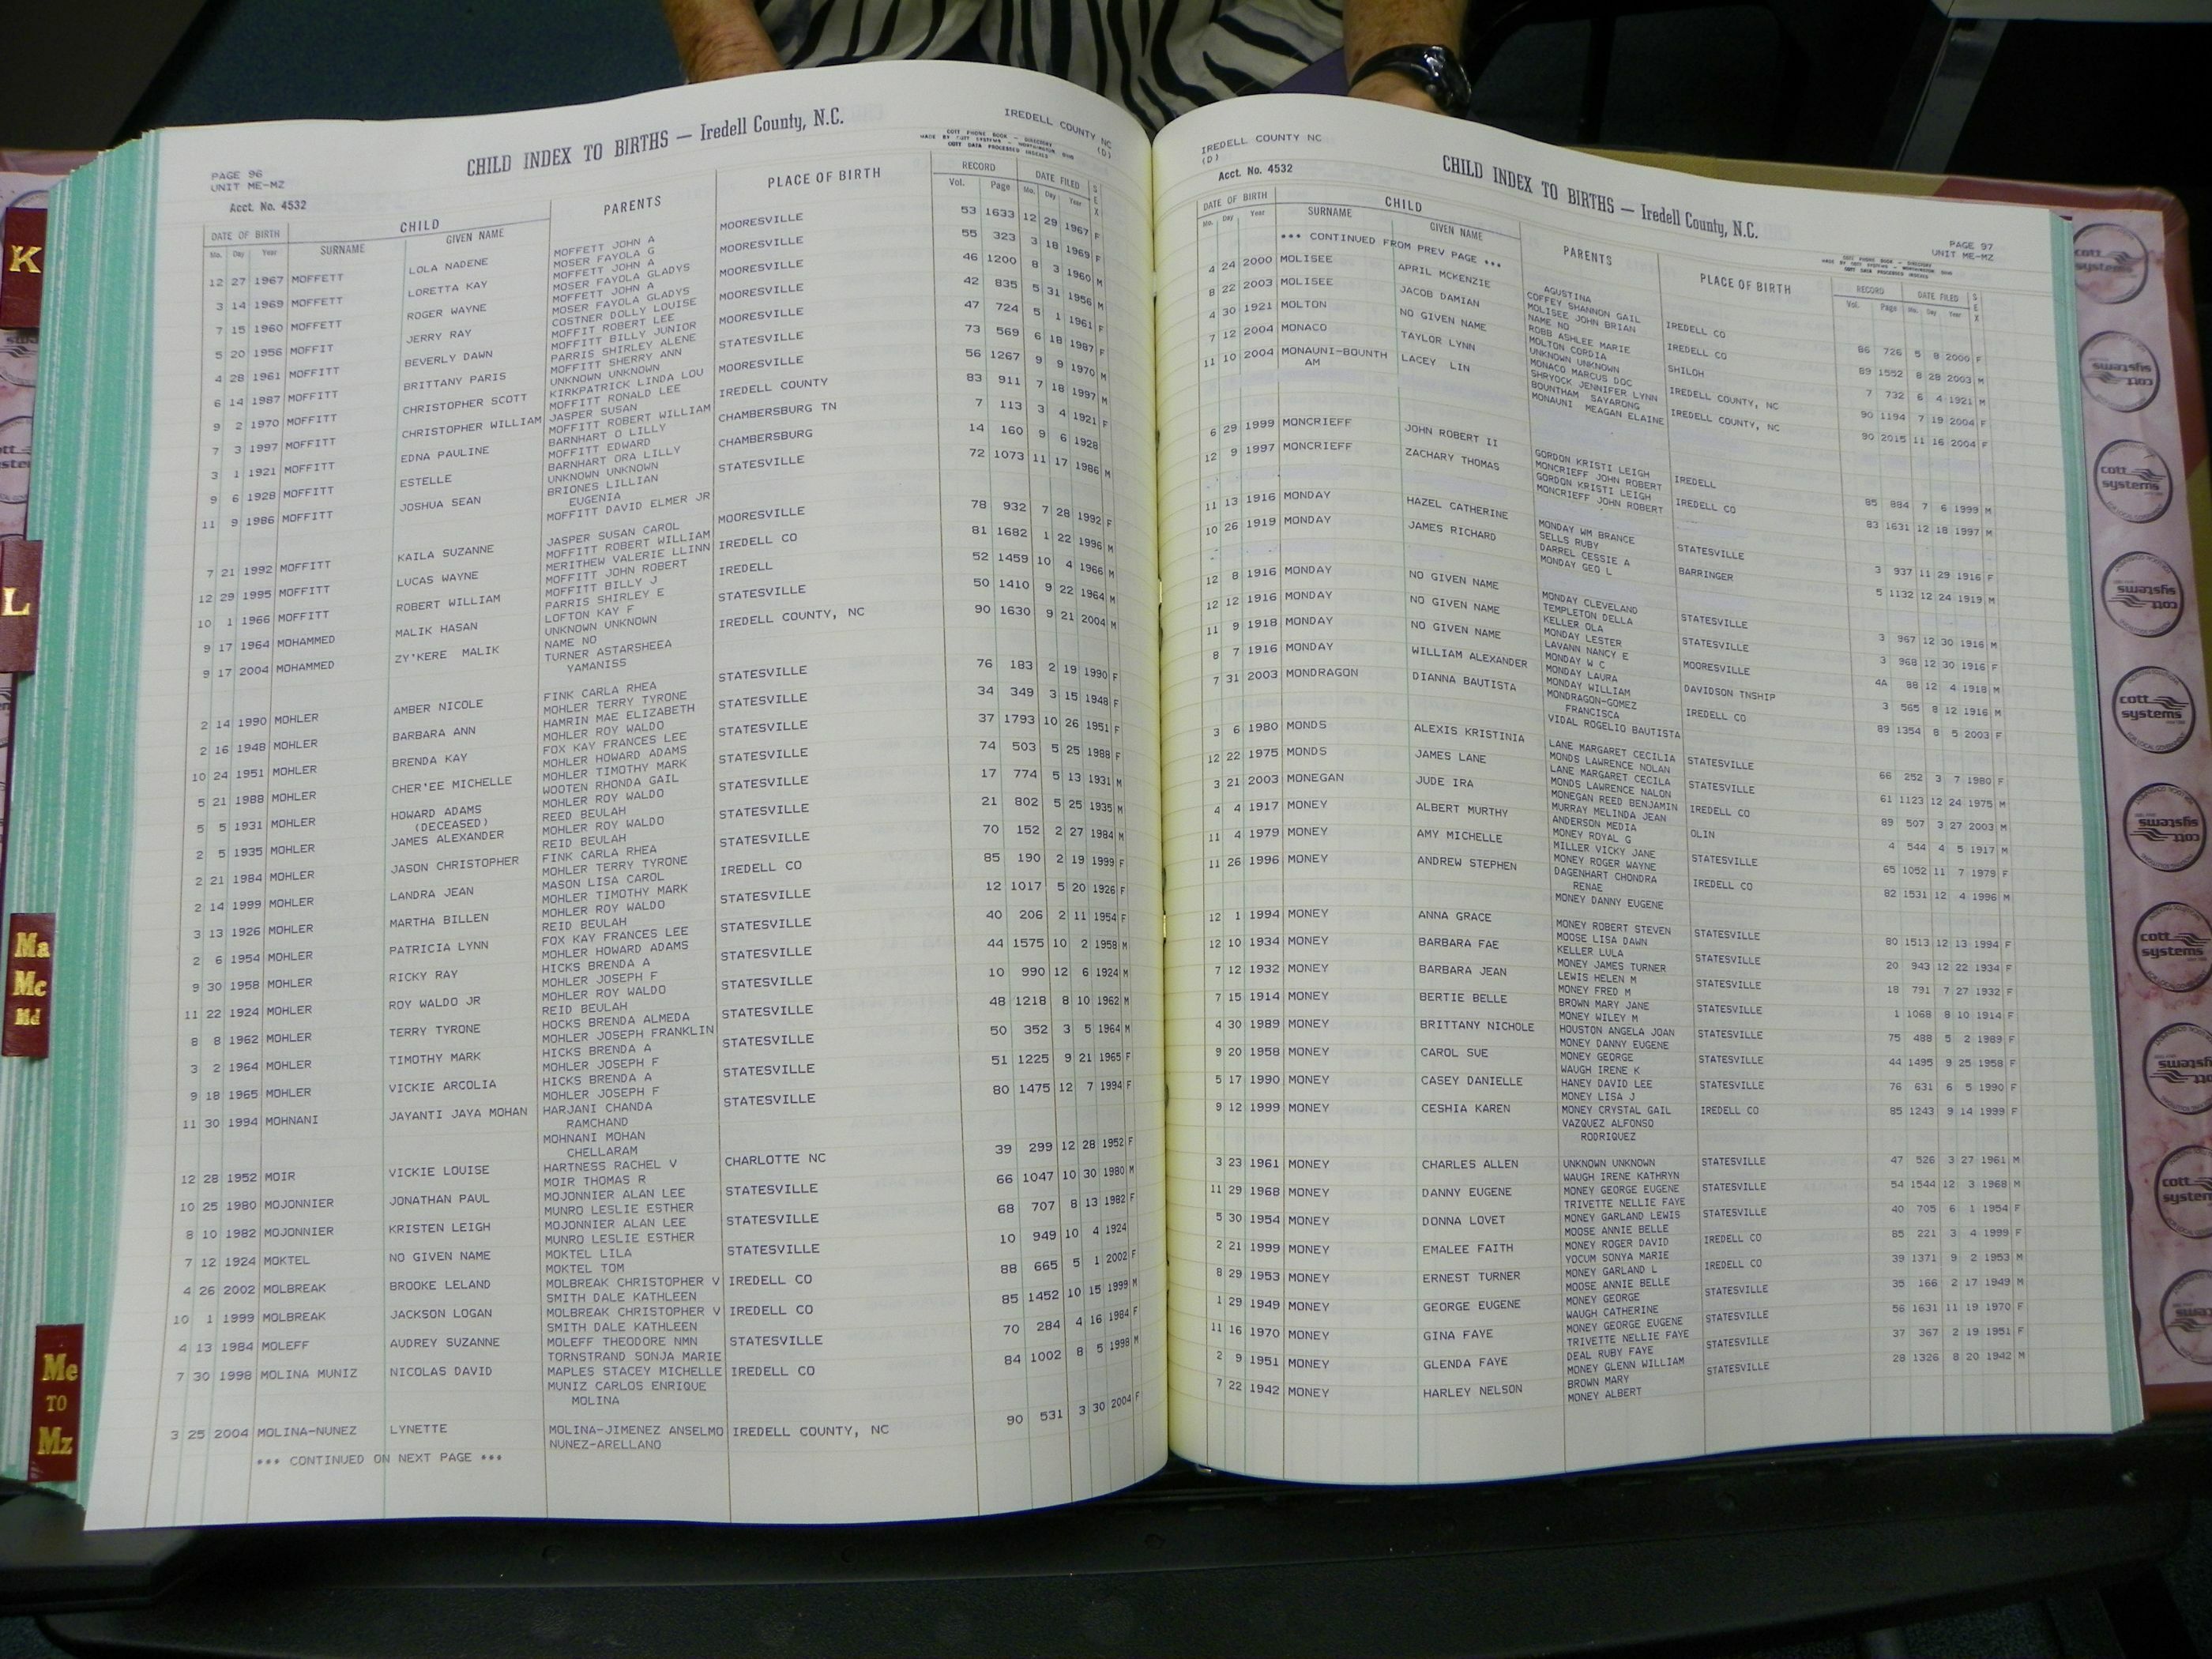 K
L
Ma
Mc
Md
Me
TO
Mz
PAGE 96
UNIT ME-MZ
Acct. No. 4532
CHILD INDEX TO BIRTHS — Iredell County, N.C.
IREDELL COUNTY NC
(D)
COTT PHONE BOOK - DIRECTORY
MADE BY COTT SYSTEMS - WORTHINGTON, OHIO
COTT DATA PROCESSED INDEXES
DATE OF BIRTH CHILD PARENTS PLACE OF BIRTH RECORD DATE FILED SEX
Mo. Day Year SURNAME GIVEN NAME Vol. Page Mo. Day Year
12 27 1967 MOFFETT LOLA NADENE MOFFETT JOHN A MOORESVILLE 53 1633 12 29 1967 F
MOSER FAYOLA G
3 14 1969 MOFFETT LORETTA KAY MOFFETT JOHN A MOORESVILLE 55 323 3 18 1969 F
MOSER FAYOLA GLADYS
7 15 1960 MOFFETT ROGER WAYNE MOFFETT JOHN A MOORESVILLE 46 1200 8 3 1960 M
MOSER FAYOLA GLADYS
5 20 1956 MOFFIT JERRY RAY COSTNER DOLLY LOUISE MOORESVILLE 42 835 5 31 1956 M
MOFFIT ROBERT LEE
4 28 1961 MOFFITT BEVERLY DAWN MOFFITT BILLY JUNIOR MOORESVILLE 47 724 5 1 1961 F
PARRIS SHIRLEY ALENE
6 14 1987 MOFFITT BRITTANY PARIS MOFFITT SHERRY ANN STATESVILLE 73 569 6 18 1987 F
UNKNOWN UNKNOWN
9 2 1970 MOFFITT CHRISTOPHER SCOTT KIRKPATRICK LINDA LOU MOORESVILLE 56 1267 9 9 1970 M
MOFFITT RONALD LEE
7 3 1997 MOFFITT CHRISTOPHER WILLIAM JASPER SUSAN IREDELL COUNTY 83 911 7 18 1997 M
MOFFITT ROBERT WILLIAM
3 1 1921 MOFFITT EDNA PAULINE BARNHART O LILLY CHAMBERSBURG TN 7 113 3 4 1921 F
MOFFITT EDWARD
9 6 1928 MOFFITT ESTELLE BARNHART ORA LILLY CHAMBERSBURG 14 160 9 6 1928
UNKNOWN UNKNOWN
11 9 1986 MOFFITT JOSHUA SEAN BRIONES LILLIAN STATESVILLE 72 1073 11 17 1986 M
EUGENIA
MOFFITT DAVID ELMER JR
7 21 1992 MOFFITT KAILA SUZANNE JASPER SUSAN CAROL MOORESVILLE 78 932 7 28 1992 F
MOFFITT ROBERT WILLIAM
12 29 1995 MOFFITT LUCAS WAYNE MERITHEW VALERIE LLINN IREDELL CO 81 1682 1 22 1996 M
MOFFITT JOHN ROBERT
10 1 1966 MOFFITT ROBERT WILLIAM MOFFITT BILLY J IREDELL 52 1459 10 4 1966 M
PARRIS SHIRLEY E
9 17 1964 MOHAMMED MALIK HASAN LOFTON KAY F STATESVILLE 50 1410 9 22 1964 M
UNKNOWN UNKNOWN
9 17 2004 MOHAMMED ZY'KERE MALIK NAME NO IREDELL COUNTY, NC 90 1630 9 21 2004 M
TURNER ASTARSHEEA
YAMANISS
2 14 1990 MOHLER AMBER NICOLE FINK CARLA RHEA STATESVILLE 76 183 2 19 1990 F
MOHLER TERRY TYRONE
2 16 1948 MOHLER BARBARA ANN HAMRIN MAE ELIZABETH STATESVILLE 34 349 3 15 1948 F
MOHLER ROY WALDO
10 24 1951 MOHLER BRENDA KAY FOX KAY FRANCES LEE STATESVILLE 37 1793 10 26 1951 F
MOHLER HOWARD ADAMS
5 21 1988 MOHLER CHER'EE MICHELLE MOHLER TIMOTHY MARK STATESVILLE 74 503 5 25 1988 F
WOOTEN RHONDA GAIL
5 5 1931 MOHLER HOWARD ADAMS MOHLER ROY WALDO STATESVILLE 17 774 5 13 1931 M
(DECEASED) REED BEULAH
2 5 1935 MOHLER JAMES ALEXANDER MOHLER ROY WALDO STATESVILLE 21 802 5 25 1935 M
REID BEULAH
2 21 1984 MOHLER JASON CHRISTOPHER FINK CARLA RHEA STATESVILLE 70 152 2 27 1984 M
MOHLER TERRY TYRONE
2 14 1999 MOHLER LANDRA JEAN MASON LISA CAROL IREDELL CO 85 190 2 19 1999 F
MOHLER TIMOTHY MARK
3 13 1926 MOHLER MARTHA BILLEN MOHLER ROY WALDO STATESVILLE 12 1017 5 20 1926 F
REID BEULAH
2 6 1954 MOHLER PATRICIA LYNN FOX KAY FRANCES LEE STATESVILLE 40 206 2 11 1954 F
MOHLER HOWARD ADAMS
9 30 1958 MOHLER RICKY RAY HICKS BRENDA A STATESVILLE 44 1575 10 2 1958 M
MOHLER JOSEPH F
11 22 1924 MOHLER ROY WALDO JR MOHLER ROY WALDO STATESVILLE 10 990 12 6 1924 M
REID BEULAH
8 8 1962 MOHLER TERRY TYRONE HOCKS BRENDA ALMEDA STATESVILLE 48 1218 8 10 1962 M
MOHLER JOSEPH FRANKLIN
3 2 1964 MOHLER TIMOTHY MARK HICKS BRENDA A STATESVILLE 50 352 3 5 1964 M
MOHLER JOSEPH F
9 18 1965 MOHLER VICKIE ARCOLIA HICKS BRENDA A STATESVILLE 51 1225 9 21 1965 F
MOHLER JOSEPH F
11 30 1994 MOHNANI JAYANTI JAYA MOHAN HARJANI CHANDA STATESVILLE 80 1475 12 7 1994 F
RAMCHAND
MOHNANI MOHAN
CHELLARAM
12 28 1952 MOIR VICKIE LOUISE HARTNESS RACHEL V CHARLOTTE NC 39 299 12 28 1952 F
MOIR THOMAS R
10 25 1980 MOJONNIER JONATHAN PAUL MOJONNIER ALAN LEE STATESVILLE 66 1047 10 30 1980 M
MUNRO LESLIE ESTHER
8 10 1982 MOJONNIER KRISTEN LEIGH MOJONNIER ALAN LEE STATESVILLE 68 707 8 13 1982 F
MUNRO LESLIE ESTHER
7 12 1924 MOKTEL NO GIVEN NAME MOKTEL LILA STATESVILLE 10 949 10 4 1924
MOKTEL TOM
4 26 2002 MOLBREAK BROOKE LELAND MOLBREAK CHRISTOPHER V IREDELL CO 88 665 5 1 2002 F
SMITH DALE KATHLEEN
10 1 1999 MOLBREAK JACKSON LOGAN MOLBREAK CHRISTOPHER V IREDELL CO 85 1452 10 15 1999 M
SMITH DALE KATHLEEN
4 13 1984 MOLEFF AUDREY SUZANNE MOLEFF THEODORE NMN STATESVILLE 70 284 4 16 1984 F
TORNSTRAND SONJA MARIE
7 30 1998 MOLINA MUNIZ NICOLAS DAVID MAPLES STACEY MICHELLE IREDELL CO 84 1002 8 5 1998 M
MUNIZ CARLOS ENRIQUE
MOLINA
3 25 2004 MOLINA-NUNEZ LYNETTE MOLINA-JIMENEZ ANSELMO IREDELL COUNTY, NC 90 531 3 30 2004 F
NUNEZ-ARELLANO
*** CONTINUED ON NEXT PAGE ***
IREDELL COUNTY NC
(D)
Acct. No. 4532
CHILD INDEX TO BIRTHS — Iredell County, N.C.
PAGE 97
UNIT ME-MZ
DATE OF BIRTH CHILD PARENTS PLACE OF BIRTH RECORD DATE FILED SEX
Mo. Day Year SURNAME GIVEN NAME Vol. Page Mo. Day Year
*** CONTINUED FROM PREV PAGE ***
AGUSTINA
4 24 2000 MOLISEE APRIL MCKENZIE COFFEY SHANNON GAIL IREDELL CO 86 726 5 8 2000 F
MOLISEE JOHN BRIAN
8 22 2003 MOLISEE JACOB DAMIAN NAME NO IREDELL CO 89 1552 8 28 2003 M
ROBB ASHLEE MARIE
4 30 1921 MOLTON NO GIVEN NAME MOLTON CORDIA SHILOH 7 732 6 4 1921 M
UNKNOWN UNKNOWN
7 12 2004 MONACO TAYLOR LYNN MONACO MARCUS DOC IREDELL COUNTY, NC 90 1194 7 19 2004 F
SHRYOCK JENNIFER LYNN
11 10 2004 MONAUNI-BOUNTH LACEY LIN BOUNTHAM SAYARONG IREDELL COUNTY, NC 90 2015 11 16 2004 F
AM MONAUNI MEAGAN ELAINE
6 29 1999 MONCRIEFF JOHN ROBERT II GORDON KRISTI LEIGH IREDELL 85 884 7 6 1999 M
MONCRIEFF JOHN ROBERT
12 9 1997 MONCRIEFF ZACHARY THOMAS GORDON KRISTI LEIGH IREDELL CO 83 1631 12 18 1997 M
MONCRIEFF JOHN ROBERT
11 13 1916 MONDAY HAZEL CATHERINE MONDAY WM BRANCE STATESVILLE 3 937 11 29 1916 F
SELLS RUBY
10 26 1919 MONDAY JAMES RICHARD DARREL CESSIE A BARRINGER 5 1132 12 24 1919 M
MONDAY GEO L
12 8 1916 MONDAY NO GIVEN NAME MONDAY CLEVELAND STATESVILLE 3 967 12 30 1916 M
TEMPLETON DELLA
12 12 1916 MONDAY NO GIVEN NAME KELLER OLA STATESVILLE 3 968 12 30 1916 F
MONDAY LESTER
11 9 1918 MONDAY NO GIVEN NAME LAVANN NANCY E MOORESVILLE 4A 88 12 4 1918 M
MONDAY W C
8 7 1916 MONDAY WILLIAM ALEXANDER MONDAY LAURA DAVIDSON TNSHIP 3 565 8 12 1916 M
MONDAY WILLIAM
7 31 2003 MONDRAGON DIANNA BAUTISTA MONDRAGON-GOMEZ IREDELL CO 89 1354 8 5 2003 F
FRANCISCA
VIDAL ROGELIO BAUTISTA
3 6 1980 MONDS ALEXIS KRISTINIA LANE MARGARET CECILIA STATESVILLE 66 252 3 7 1980 F
MONDS LAWRENCE NOLAN
12 22 1975 MONDS JAMES LANE LANE MARGARET CECILA STATESVILLE 61 1123 12 24 1975 M
MONDS LAWRENCE NALON
3 21 2003 MONEGAN JUDE IRA MONEGAN REED BENJAMIN IREDELL CO 89 507 3 27 2003 M
MURRAY MELINDA JEAN
4 4 1917 MONEY ALBERT MURTHY ANDERSON MEDIA OLIN 4 544 4 5 1917 M
MONEY ROYAL G
11 4 1979 MONEY AMY MICHELLE MILLER VICKY JANE STATESVILLE 65 1052 11 7 1979 F
MONEY ROGER WAYNE
11 26 1996 MONEY ANDREW STEPHEN DAGENHART CHONDRA IREDELL CO 82 1531 12 4 1996 M
RENAE
MONEY DANNY EUGENE
12 1 1994 MONEY ANNA GRACE MONEY ROBERT STEVEN STATESVILLE 80 1513 12 13 1994 F
MOOSE LISA DAWN
12 10 1934 MONEY BARBARA FAE KELLER LULA STATESVILLE 20 943 12 22 1934 F
MONEY JAMES TURNER
7 12 1932 MONEY BARBARA JEAN LEWIS HELEN M STATESVILLE 18 791 7 27 1932 F
MONEY FRED M
7 15 1914 MONEY BERTIE BELLE BROWN MARY JANE STATESVILLE 1 1068 8 10 1914 F
MONEY WILEY M
4 30 1989 MONEY BRITTANY NICHOLE HOUSTON ANGELA JOAN STATESVILLE 75 488 5 2 1989 F
MONEY DANNY EUGENE
9 20 1958 MONEY CAROL SUE MONEY GEORGE STATESVILLE 44 1495 9 25 1958 F
WAUGH IRENE K
5 17 1990 MONEY CASEY DANIELLE HANEY DAVID LEE STATESVILLE 76 631 6 5 1990 F
MONEY LISA J
9 12 1999 MONEY CESHIA KAREN MONEY CRYSTAL GAIL IREDELL CO 85 1243 9 14 1999 F
VAZQUEZ ALFONSO
RODRIQUEZ
3 23 1961 MONEY CHARLES ALLEN UNKNOWN UNKNOWN STATESVILLE 47 526 3 27 1961 M
WAUGH IRENE KATHRYN
11 29 1968 MONEY DANNY EUGENE MONEY GEORGE EUGENE STATESVILLE 54 1544 12 3 1968 M
TRIVETTE NELLIE FAYE
5 30 1954 MONEY DONNA LOVET MONEY GARLAND LEWIS STATESVILLE 40 705 6 1 1954 F
MOOSE ANNIE BELLE
2 21 1999 MONEY EMALEE FAITH MONEY ROGER DAVID IREDELL CO 85 221 3 4 1999 F
YOCUM SONYA MARIE
8 29 1953 MONEY ERNEST TURNER MONEY GARLAND L IREDELL CO 39 1371 9 2 1953 M
MOOSE ANNIE BELLE
1 29 1949 MONEY GEORGE EUGENE MONEY GEORGE STATESVILLE 35 166 2 17 1949 M
WAUGH CATHERINE
11 16 1970 MONEY GINA FAYE MONEY GEORGE EUGENE STATESVILLE 56 1631 11 19 1970 F
TRIVETTE NELLIE FAYE
2 9 1951 MONEY GLENDA FAYE DEAL RUBY FAYE STATESVILLE 37 367 2 19 1951 F
MONEY GLENN WILLIAM
7 22 1942 MONEY HARLEY NELSON BROWN MARY STATESVILLE 28 1326 8 20 1942 M
MONEY ALBERT
cott
systems